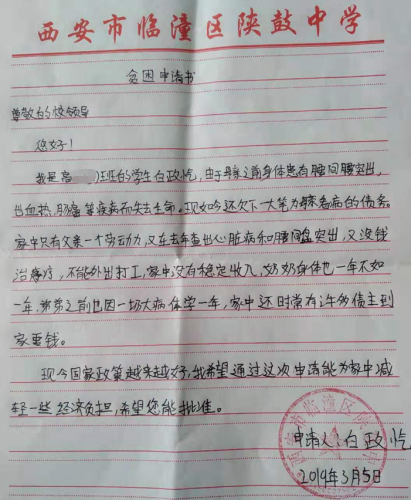 西安市临潼区陕鼓中学
贫困申请书
尊敬的校领导
您好!
我是高 班的学生白政屹,由于母亲之前身体患有腰间腰突出,
出血热,肠癌等疾病而失去生命。现如今还欠下大笔为母亲看病的债务
家中只有父亲一个劳动力,又在去年查出心脏病和腰间盘突出,又没钱
治疗,不能外出打工,家中没有稳定收入,奶奶身体也一年不如
一年,弟弟之前也因一场大病休学一年,家中还时常有许多债主到
家要钱。
现今国家政策越来越好,我希望通过这次申请能为家中减
轻一些经济负担,希望您能批准。
申请人:白政屹
2019年3月5日
西安市临潼区陕